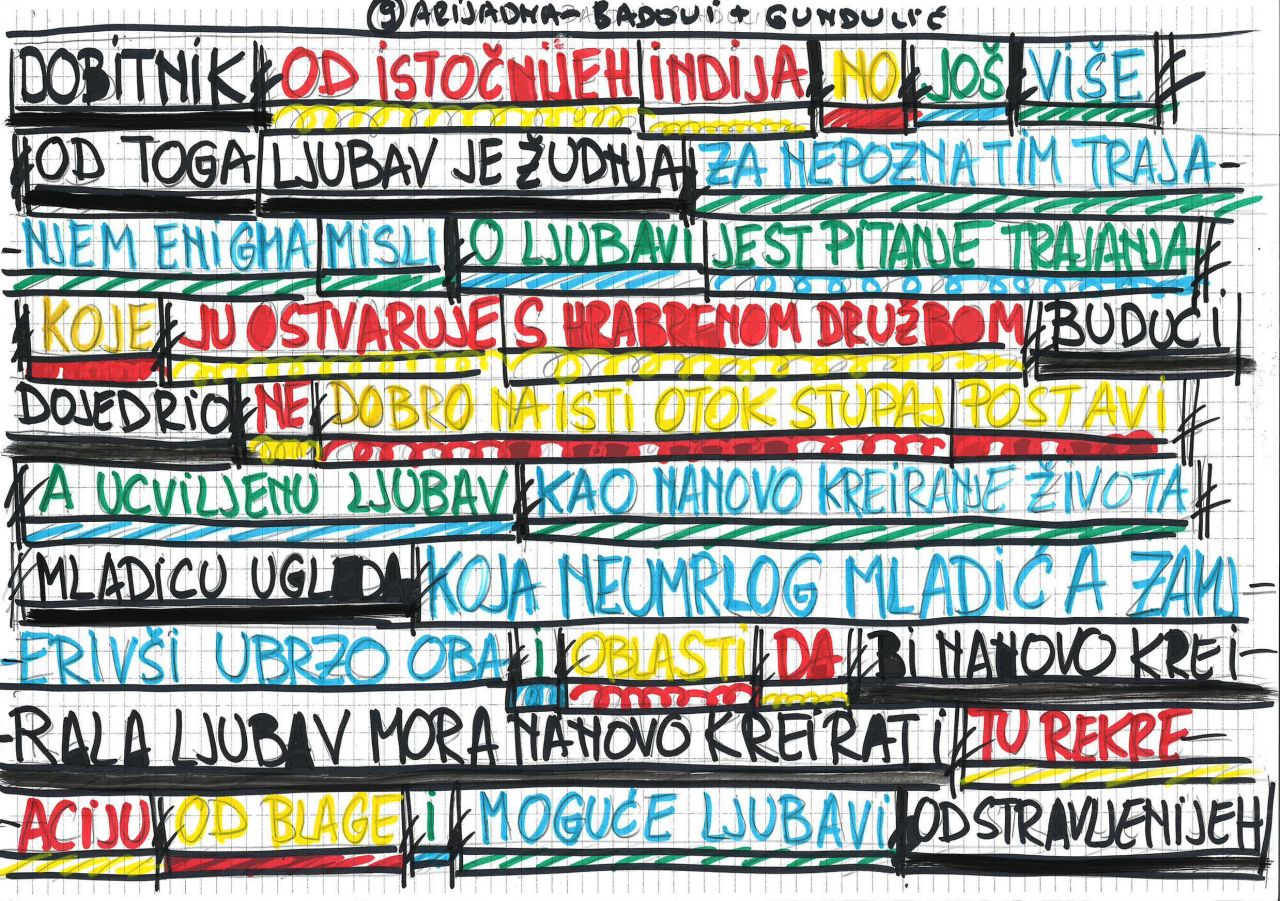 ⑨ ARIJADNA - BADOUI + GUNDULIĆ
DOBITNIK OD ISTOČNIJEH INDIJA NO JOŠ VIŠE
OD TOGA LJUBAV JE ŽUDNJA ZA NEPOZNATIM TRAJA-
-NJEM ENIGMA MISLI O LJUBAVI JEST PITANJE TRAJANJA
KOJE JU OSTVARUJE S HRABRENOM DRUŽBOM BUDUĆI
DOJEDRIO NE DOBRO NA ISTI OTOK STUPAJ POSTAVI
A UCVILJENU LJUBAV KAO NANOVO KREIRANJE ŽIVOTA
MLADICU UGLEDA KOJA NEUMRLOG MLADIĆA ZANJ-
-ERIVŠI UBRZO OBA I OBLASTI DA BI NANOVO KREI-
-RALA LJUBAV MORA NANOVO KREIRATI TU REKRE-
ACIJU OD BLAGE I MOGUĆE LJUBAVI ODSTRAVLJENIJEH